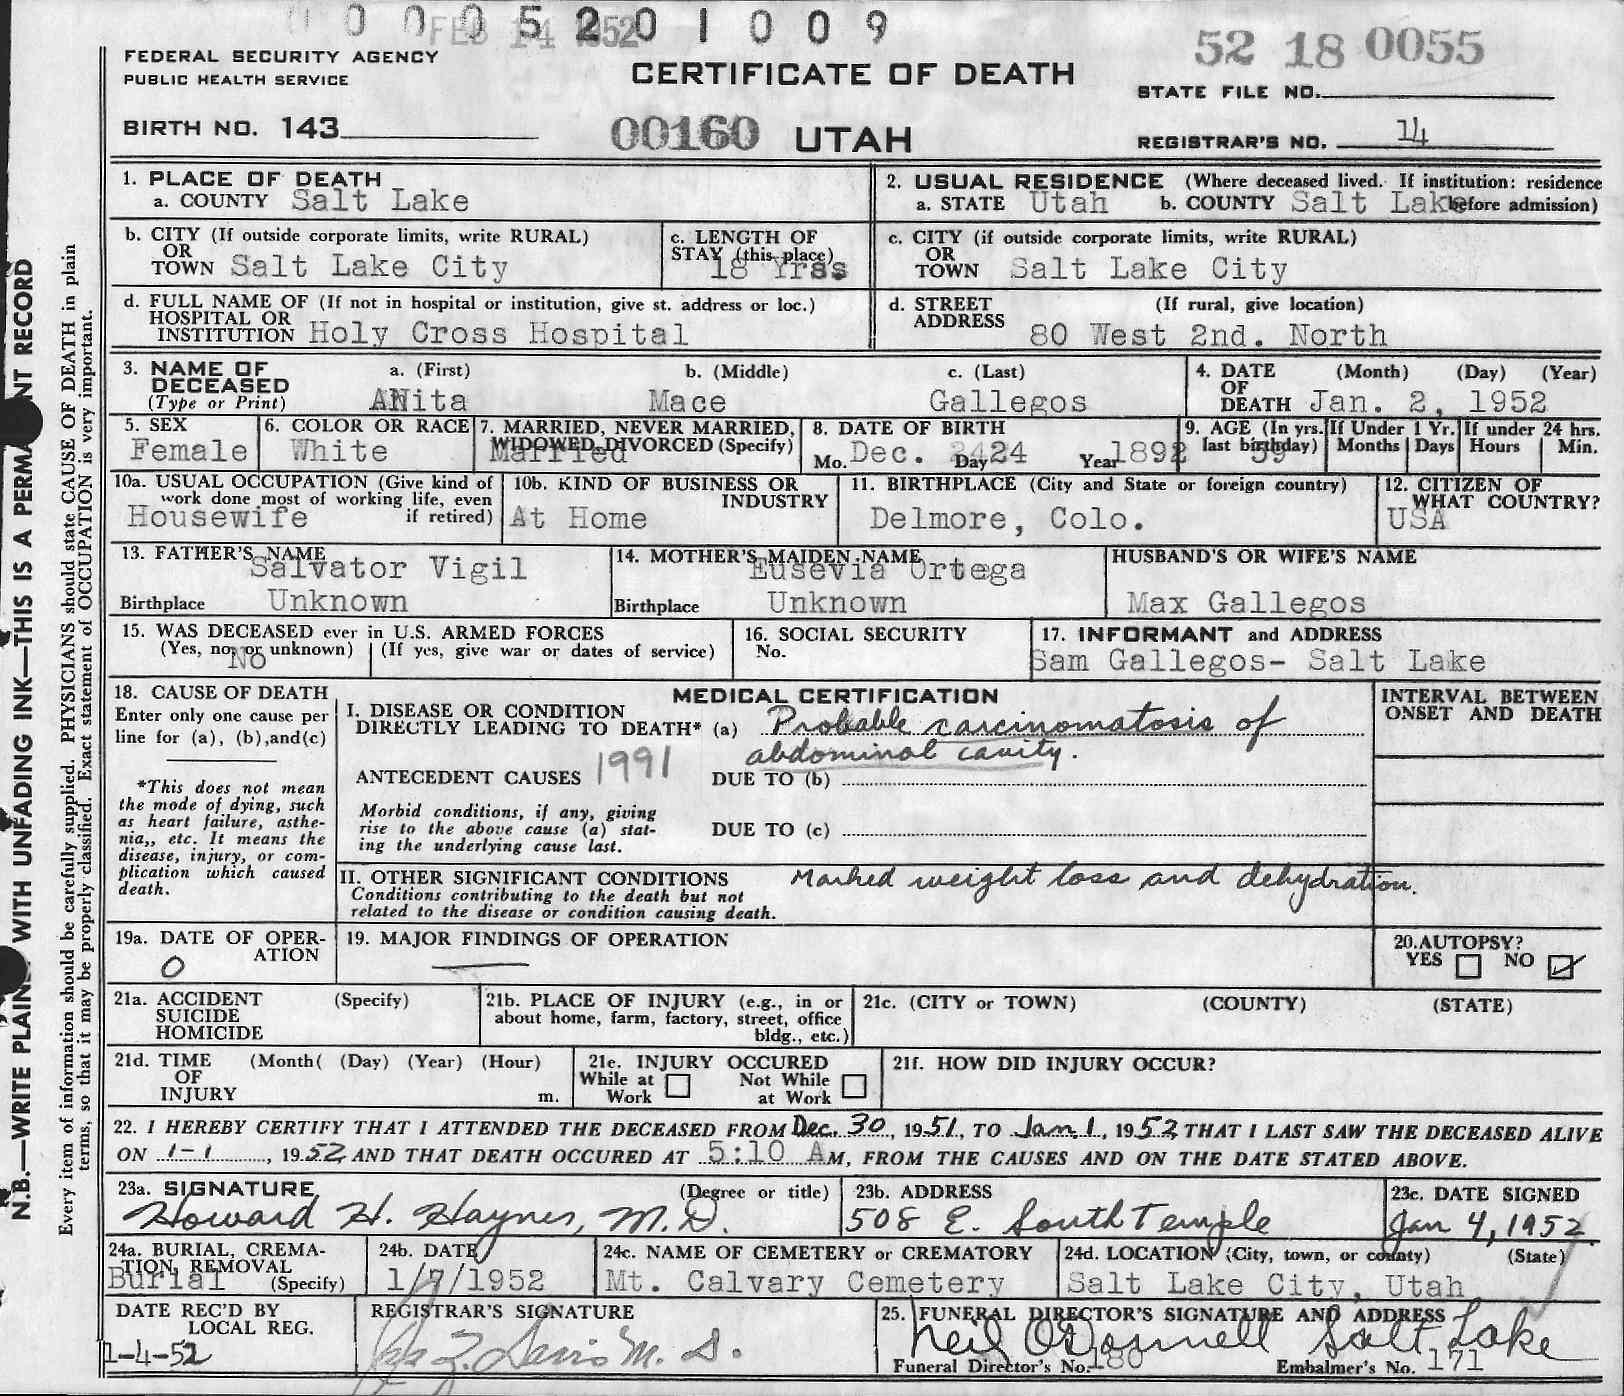 0 0 0 5 2 0 1 0 0 9
FEB 14 1952
52 18 0055
FEDERAL SECURITY AGENCY
PUBLIC HEALTH SERVICE
CERTIFICATE OF DEATH
STATE FILE NO.
BIRTH NO. 143
00160 UTAH
REGISTRAR'S NO. 14
1. PLACE OF DEATH
a. COUNTY Salt Lake
2. USUAL RESIDENCE (Where deceased lived. If institution: residence
a. STATE Utah b. COUNTY Salt Lake before admission)
b. CITY (If outside corporate limits, write RURAL)
OR
TOWN Salt Lake City
c. LENGTH OF
STAY (this place)
18 Yrss
c. CITY (if outside corporate limits, write RURAL)
OR
TOWN Salt Lake City
d. FULL NAME OF (If not in hospital or institution, give st. address or loc.)
HOSPITAL OR
INSTITUTION Holy Cross Hospital
d. STREET (If rural, give location)
ADDRESS 80 West 2nd. North
3. NAME OF a. (First) b. (Middle) c. (Last)
DECEASED
(Type or Print) ANita Mace Gallegos
4. DATE (Month) (Day) (Year)
OF
DEATH Jan. 2, 1952
5. SEX
Female
6. COLOR OR RACE
White
7. MARRIED, NEVER MARRIED,
WIDOWED, DIVORCED (Specify)
Married
8. DATE OF BIRTH
Mo. Dec. Day 24 Year 1892
9. AGE (In yrs. last birthday) 59
If Under 1 Yr.
Months Days
If under 24 hrs.
Hours Min.
10a. USUAL OCCUPATION (Give kind of
work done most of working life, even
Housewife if retired)
10b. KIND OF BUSINESS OR
INDUSTRY
At Home
11. BIRTHPLACE (City and State or foreign country)
Delmore, Colo.
12. CITIZEN OF
WHAT COUNTRY?
USA
13. FATHER'S NAME
Salvator Vigil
Birthplace Unknown
14. MOTHER'S MAIDEN NAME
Eusevia Ortega
Birthplace Unknown
HUSBAND'S OR WIFE'S NAME
Max Gallegos
15. WAS DECEASED ever in U.S. ARMED FORCES
(Yes, no, or unknown) (If yes, give war or dates of service)
No
16. SOCIAL SECURITY
No.
17. INFORMANT and ADDRESS
Sam Gallegos- Salt Lake
18. CAUSE OF DEATH
Enter only one cause per
line for (a), (b),and(c)
*This does not mean
the mode of dying, such
as heart failure, asthe-
nia,, etc. It means the
disease, injury, or com-
plication which caused
death.
MEDICAL CERTIFICATION
I. DISEASE OR CONDITION
DIRECTLY LEADING TO DEATH* (a) Probable carcinomatosis of
abdominal cavity.
ANTECEDENT CAUSES 1991 DUE TO (b)
Morbid conditions, if any, giving
rise to the above cause (a) stat-
ing the underlying cause last.
DUE TO (c)
INTERVAL BETWEEN
ONSET AND DEATH
II. OTHER SIGNIFICANT CONDITIONS Marked weight loss and dehydration.
Conditions contributing to the death but not
related to the disease or condition causing death.
19a. DATE OF OPER-
ATION
0
19. MAJOR FINDINGS OF OPERATION
20. AUTOPSY?
YES NO
21a. ACCIDENT (Specify)
SUICIDE
HOMICIDE
21b. PLACE OF INJURY (e.g., in or
about home, farm, factory, street, office
bldg., etc.)
21c. (CITY or TOWN) (COUNTY) (STATE)
21d. TIME (Month( (Day) (Year) (Hour)
OF
INJURY m.
21e. INJURY OCCURED
While at Work Not While at Work
21f. HOW DID INJURY OCCUR?
22. I HEREBY CERTIFY THAT I ATTENDED THE DECEASED FROM Dec. 30, 1951, TO Jan 1, 1952, THAT I LAST SAW THE DECEASED ALIVE
ON 1-1, 1952, AND THAT DEATH OCCURED AT 5:10 AM, FROM THE CAUSES AND ON THE DATE STATED ABOVE.
23a. SIGNATURE (Degree or title)
Howard H. Haynes, M.D.
23b. ADDRESS
508 E. South Temple
23c. DATE SIGNED
Jan 4, 1952
24a. BURIAL, CREMA-
TION, REMOVAL
Burial (Specify)
24b. DATE
1/7/1952
24c. NAME OF CEMETERY or CREMATORY
Mt. Calvary Cemetery
24d. LOCATION (City, town, or county) (State)
Salt Lake City, Utah
DATE REC'D BY
LOCAL REG.
1-4-52
REGISTRAR'S SIGNATURE
Davis M. D.
25. FUNERAL DIRECTOR'S SIGNATURE AND ADDRESS
Neil O'Donnell Salt Lake
Funeral Director's No. 180 Embalmer's No. 171
N.B.—WRITE PLAINLY WITH UNFADING INK—THIS IS A PERMANENT RECORD
Every item of information should be carefully supplied. PHYSICIANS should state CAUSE OF DEATH in plain
terms, so that it may be properly classified. Exact statement of OCCUPATION is very important.